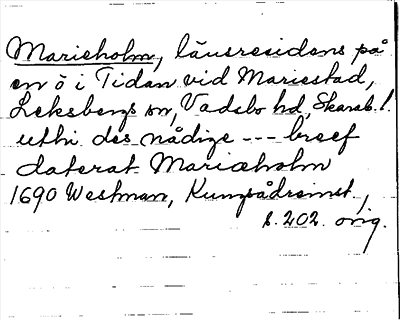 Marieholm, länsresidens på
en ö i Tidan vid Mariestad,
Leksbergs sn, Vadsbo hd, Skarab. l.
uthi des nådige --- breef
daterat Mariæholm
1690 Westman, Kungsådreinst.,
s. 202. orig.